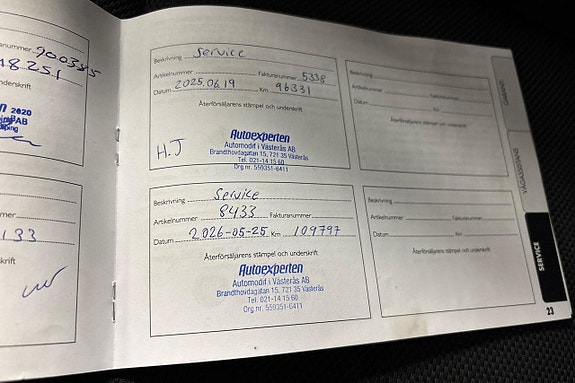 nummer 900385
18251
derskrift
2020
mmer
133
krift
Beskrivning Service
Artikelnummer Fakturanummer 5338
Datum 2025.06.19 Km 96331
Återförsäljarens stämpel och underskrift
H.J
Autoexperten
Automodif i Västerås AB
Brandthovdagatan 15, 721 35 Västerås
Tel. 021-14 15 60
Org.nr. 559351-6411
Beskrivning Service
Artikelnummer 8433 Fakturanummer
Datum 2026-05-25 Km 109797
Återförsäljarens stämpel och underskrift
Autoexperten
Automodif i Västerås AB
Brandthovdagatan 15, 721 35 Västerås
Tel. 021-14 15 60
Org.nr. 559351-6411
Beskrivning
Artikelnummer Fakturanummer
Datum Km
Återförsäljarens stämpel och underskrift
Beskrivning
Artikelnummer Fakturanummer
Datum Km
Återförsäljarens stämpel och underskrift
GARANTI
VÄGASSISTANS
SERVICE
23